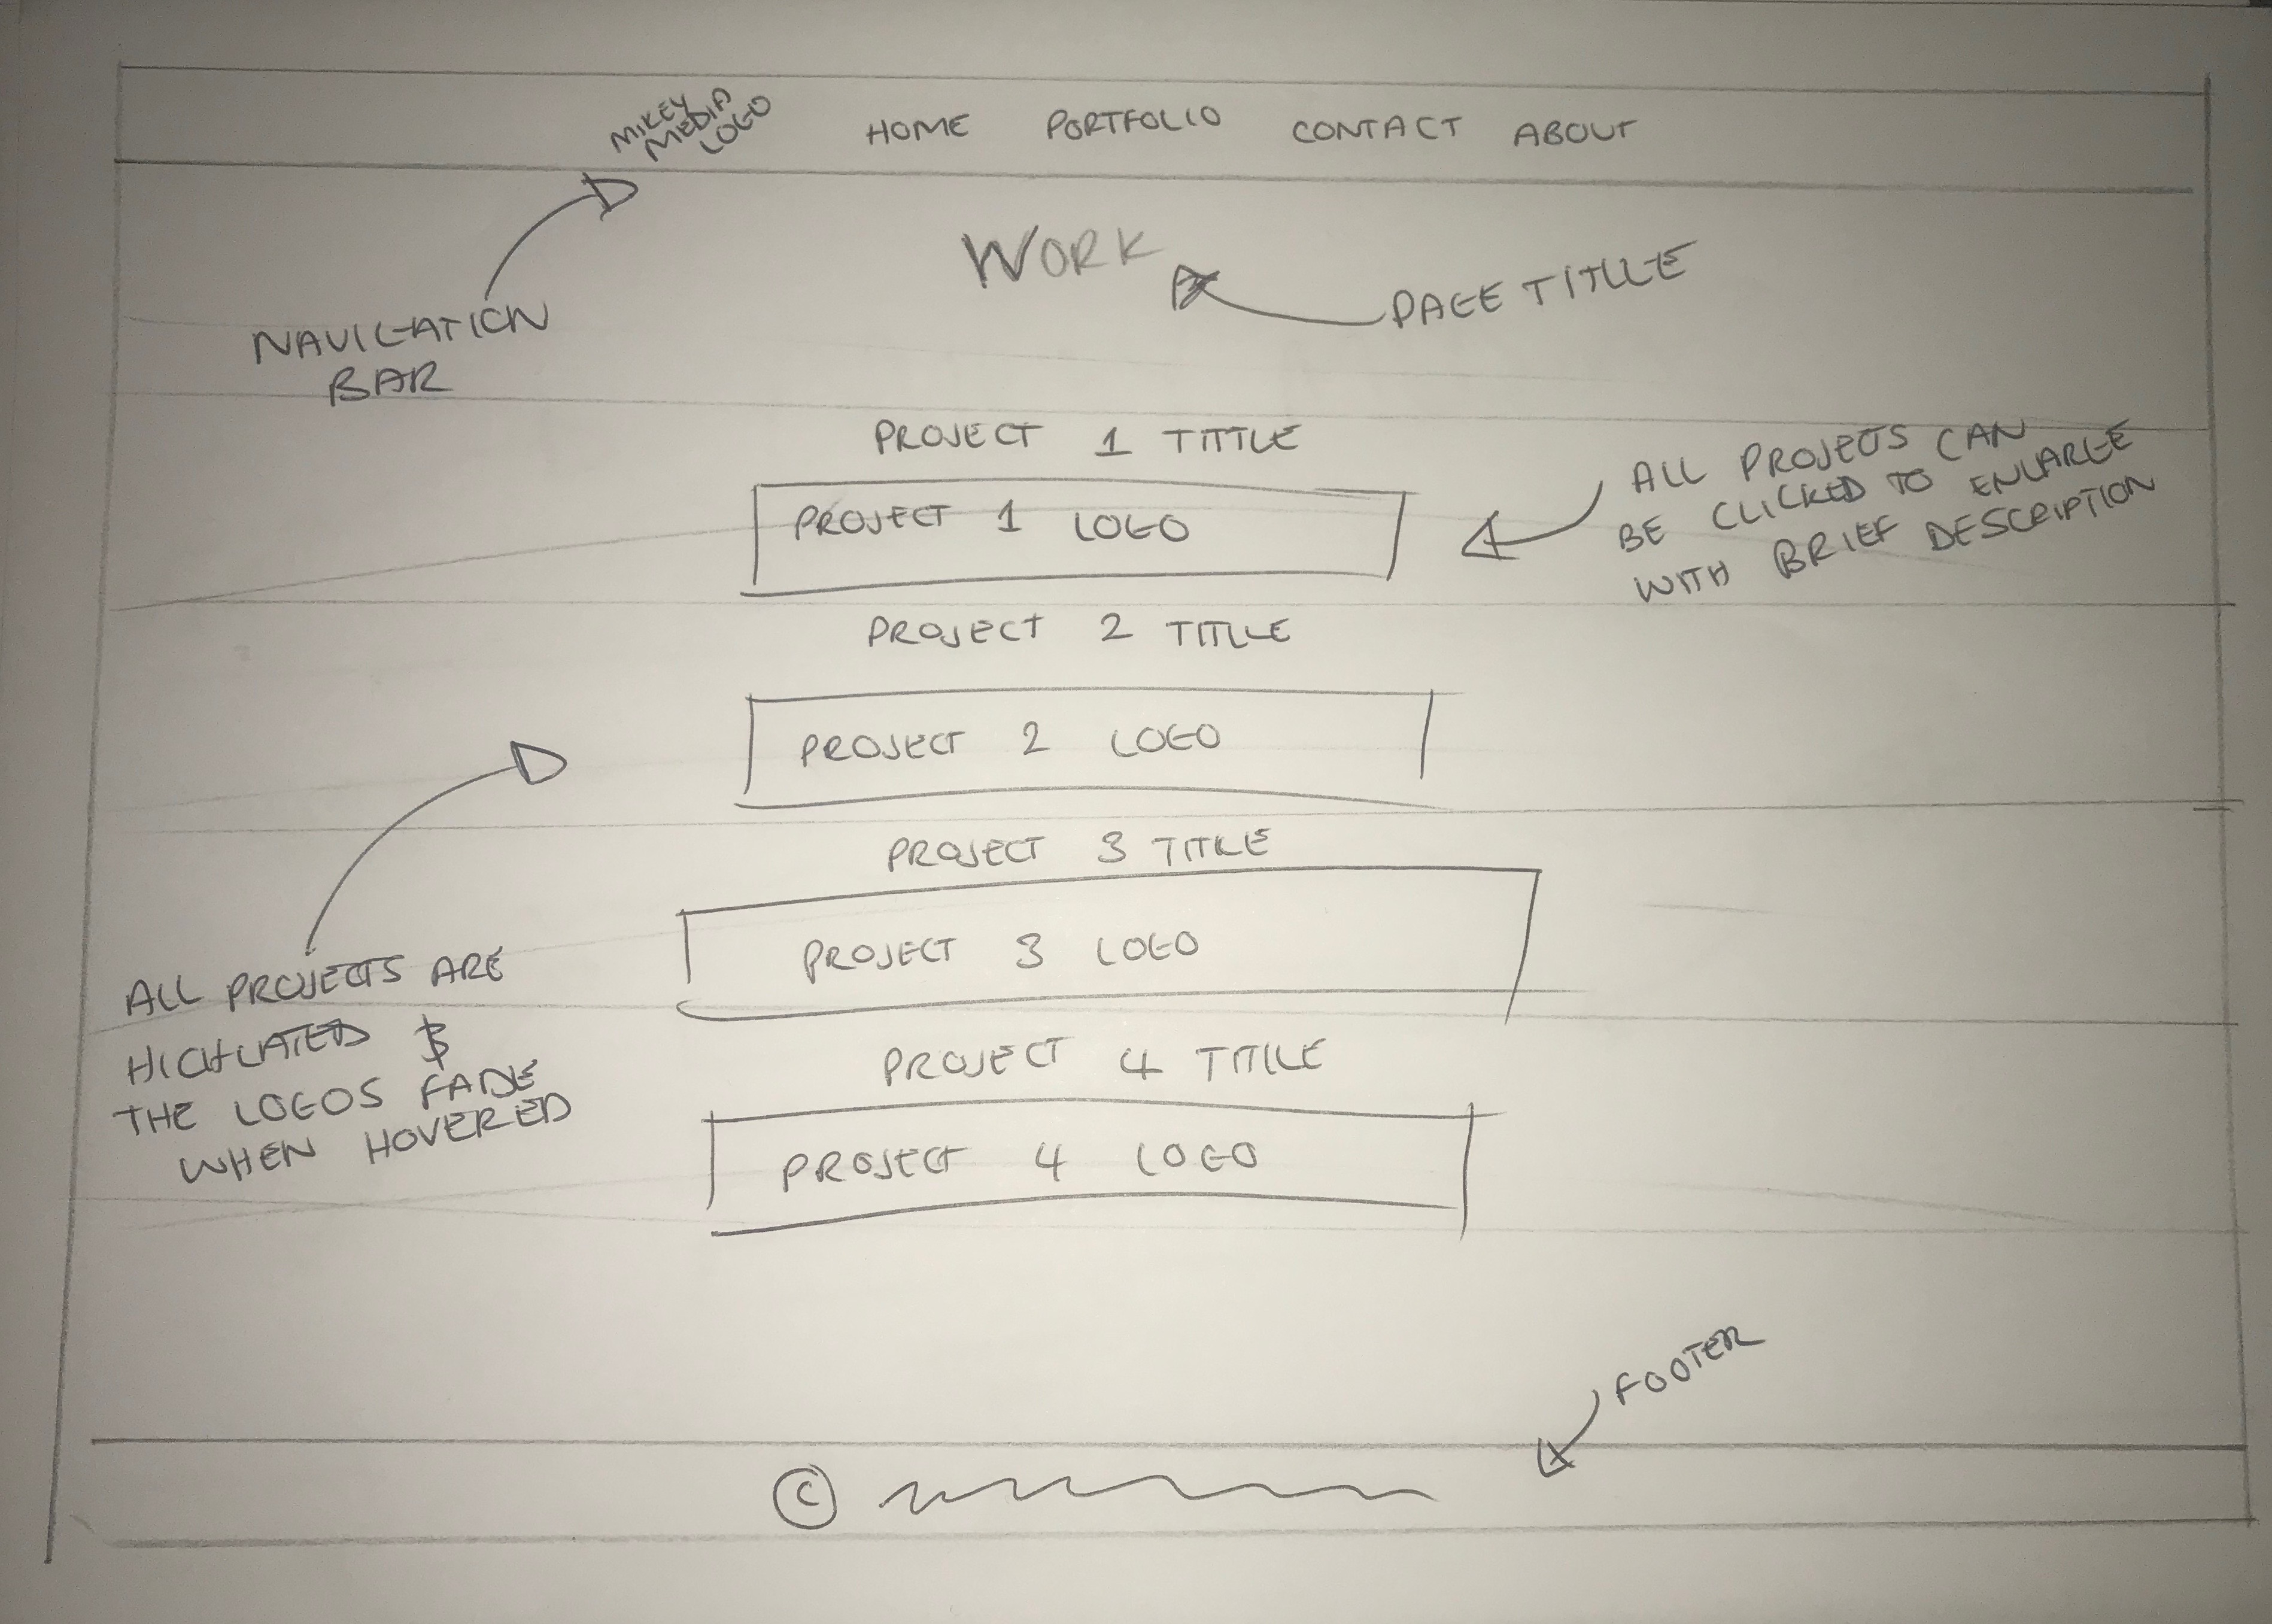 MIKEY
MEDIA
LOGO
HOME PORTFOLIO CONTACT ABOUT
WORK
PAGE TITLE
NAVIGATION
BAR
PROJECT 1 TITTLE
PROJECT 1 LOGO
ALL PROJECTS CAN
BE CLICKED TO ENLARGE
WITH BRIEF DESCRIPTION
PROJECT 2 TITLE
PROJECT 2 LOGO
PROJECT 3 TITLE
PROJECT 3 LOGO
ALL PROJECTS ARE
HIGHLATED &
THE LOGOS FADE
WHEN HOVERED
PROJECT 4 TITLE
PROJECT 4 LOGO
FOOTER
©